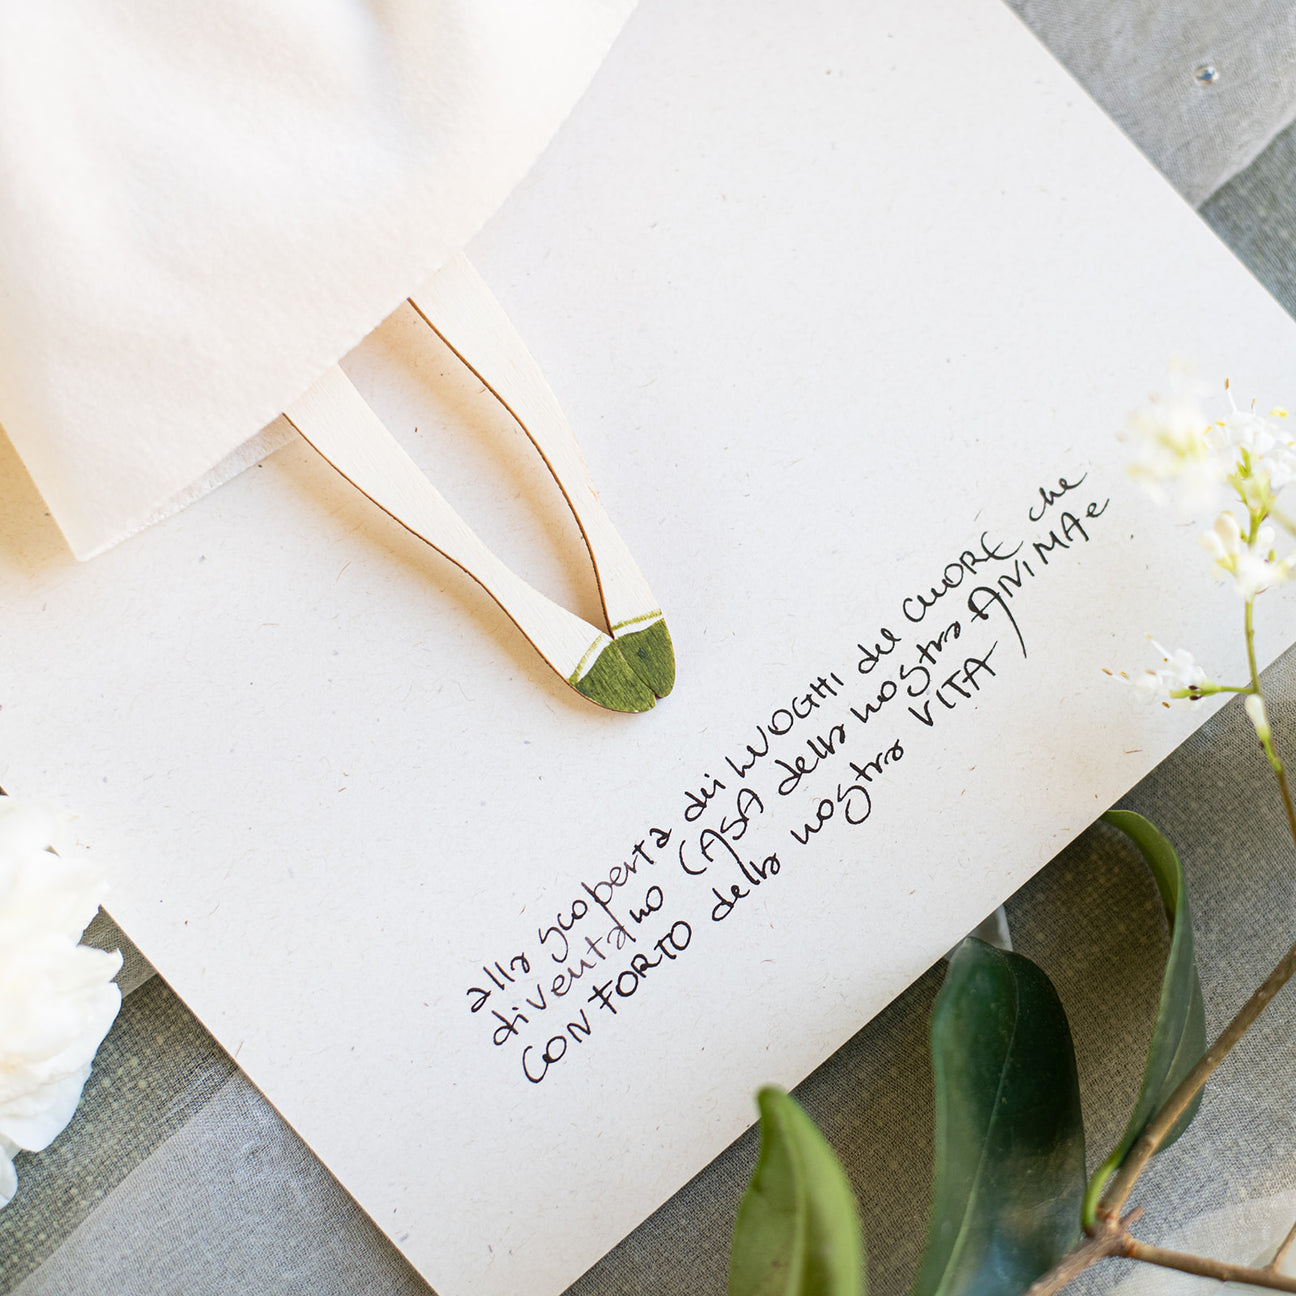 alla scoperta dei LUOGHI del CUORE che
diventano CASA della nostra ANIMA e
CONFORTO della nostra VITA